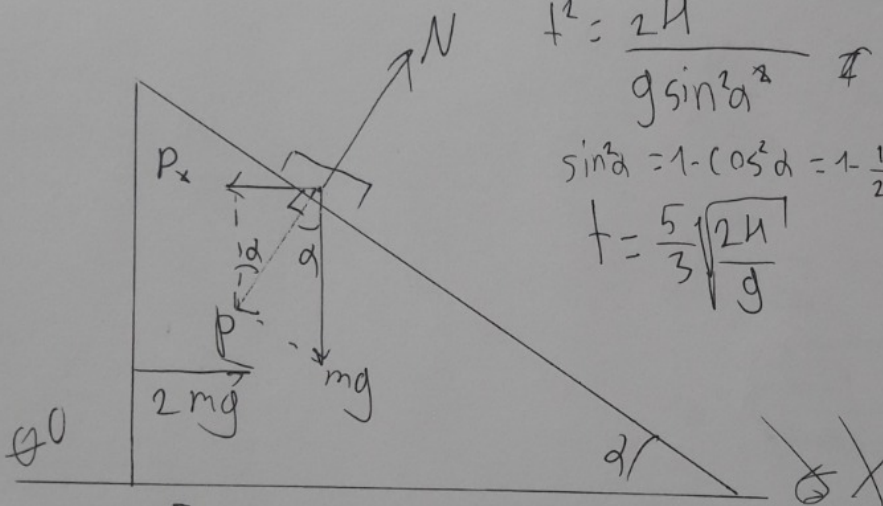 N
t² = 2H / g sin²α
sin²α = 1 - cos²α = 1 - 1/2
t = 5/3 √(2H/g)
Pₓ
α
α
P
mg
2mg
0
α
X